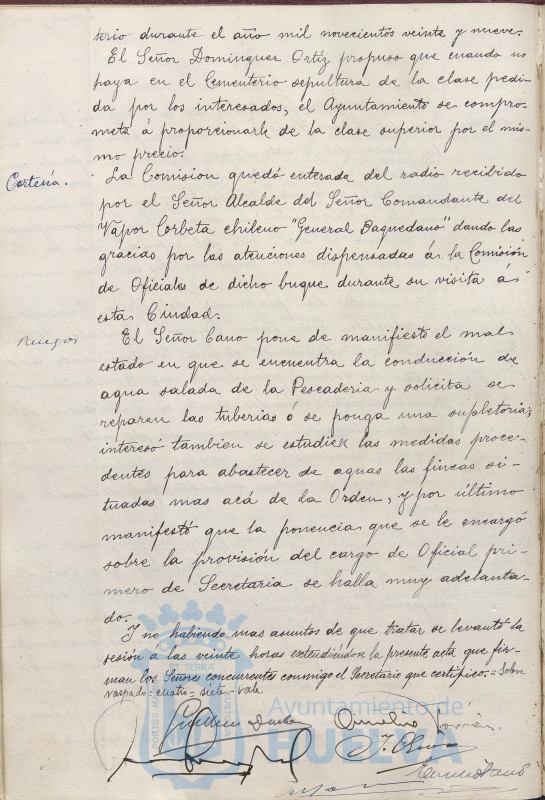 terio durante el año mil novecientos veinte y nueve.
El Señor Dominguez Ortiz propuso que cuando no
haya en el Cementerio sepultura de la clase pedi-
da por los interesados, el Ayuntamiento se compro-
meta á proporcionarle de la clase superior por el mis-
mo precio.
Cortesía.
La Comision quedó enterada del radio recibido
por el Señor Alcalde del Señor Comandante del
Vapor Corbeta chileno "General Baquedano" dando las
gracias por las atenciones dispensadas á la Comisión
de Oficiales de dicho buque durante su visita á
esta Ciudad.
Ruegos
El Señor Cano pone de manifiesto el mal
estado en que se encuentra la conducción de
agua salada de la Pescaderia y solicita se
reparen las tuberias ó se ponga una supletoria;
interesó tambien se estudien las medidas proce-
dentes para abastecer de aguas las fincas si-
tuadas mas acá de la Orden, y por último
manifestó que la ponencia que se le encargó
sobre la provisión del cargo de Oficial pri-
mero de Secretaria se halla muy adelanta-
do.
Y no habiendo mas asuntos de que tratar se levantó la
sesión a las veinte horas extendiéndose la presente acta que fir-
man los Señores concurrentes conmigo el Secretario que certifico.= Sobre
raspado= cuatro= siete= vale.
Ayuntamiento de
HUELVA